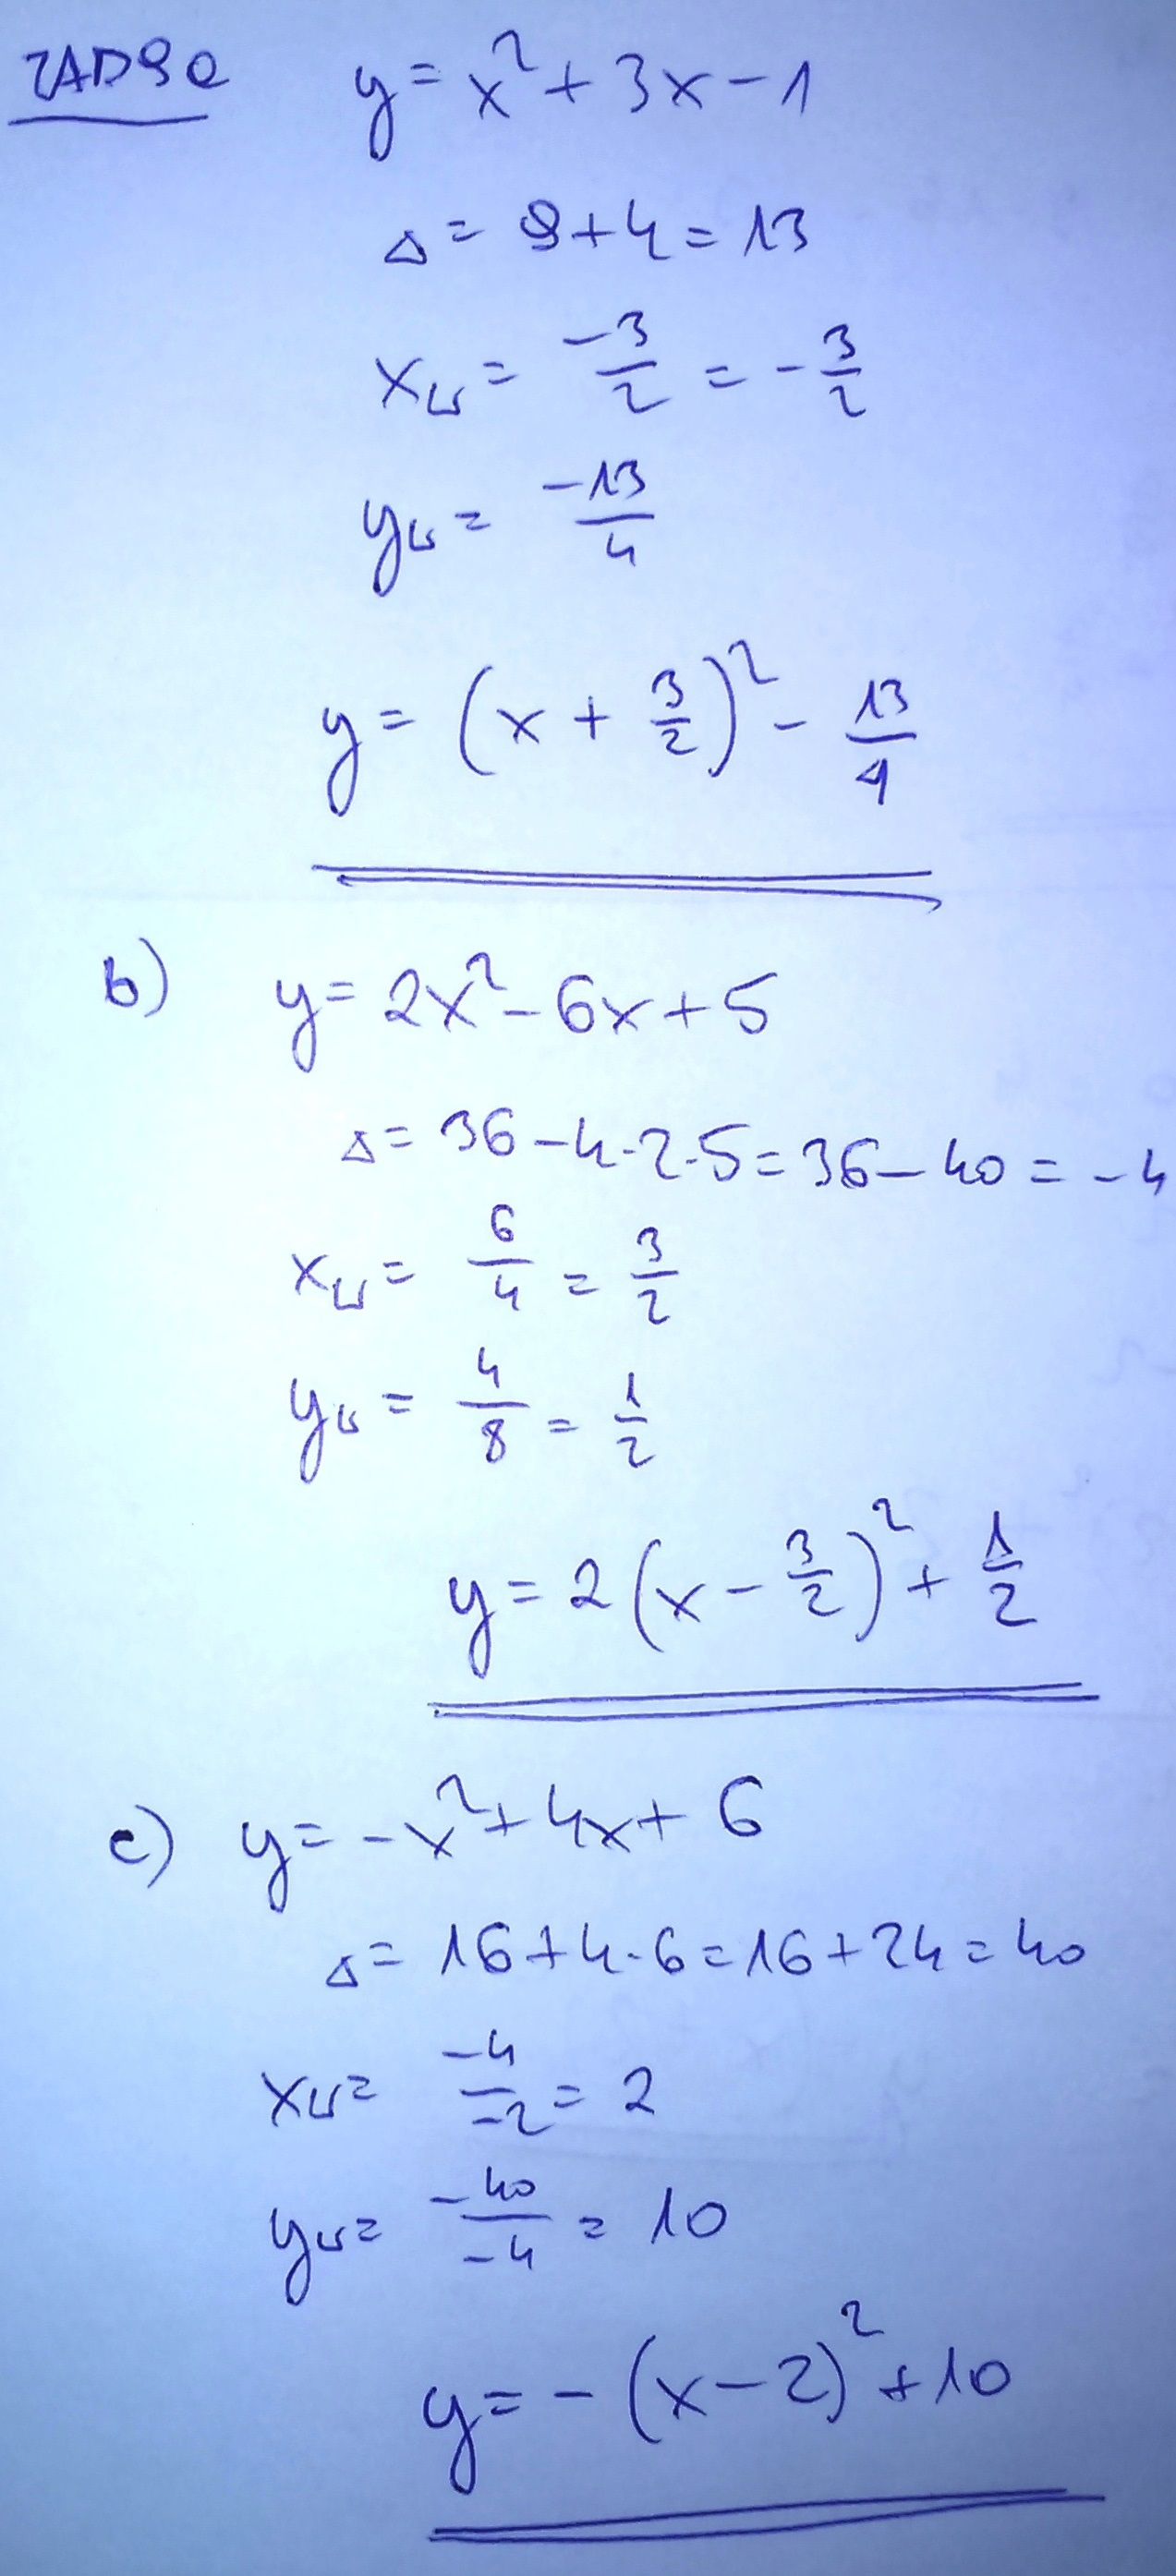 ZAD 9a y = x² + 3x - 1
Δ = 9 + 4 = 13
xw = -3/2 = -3/2
yw = -13/4
y = (x + 3/2)² - 13/4
b) y = 2x² - 6x + 5
Δ = 36 - 4·2·5 = 36 - 40 = -4
xw = 6/4 = 3/2
yw = 4/8 = 1/2
y = 2(x - 3/2)² + 1/2
c) y = -x² + 4x + 6
Δ = 16 + 4·6 = 16 + 24 = 40
xw = -4/-2 = 2
yw = -40/-4 = 10
y = -(x - 2)² + 10